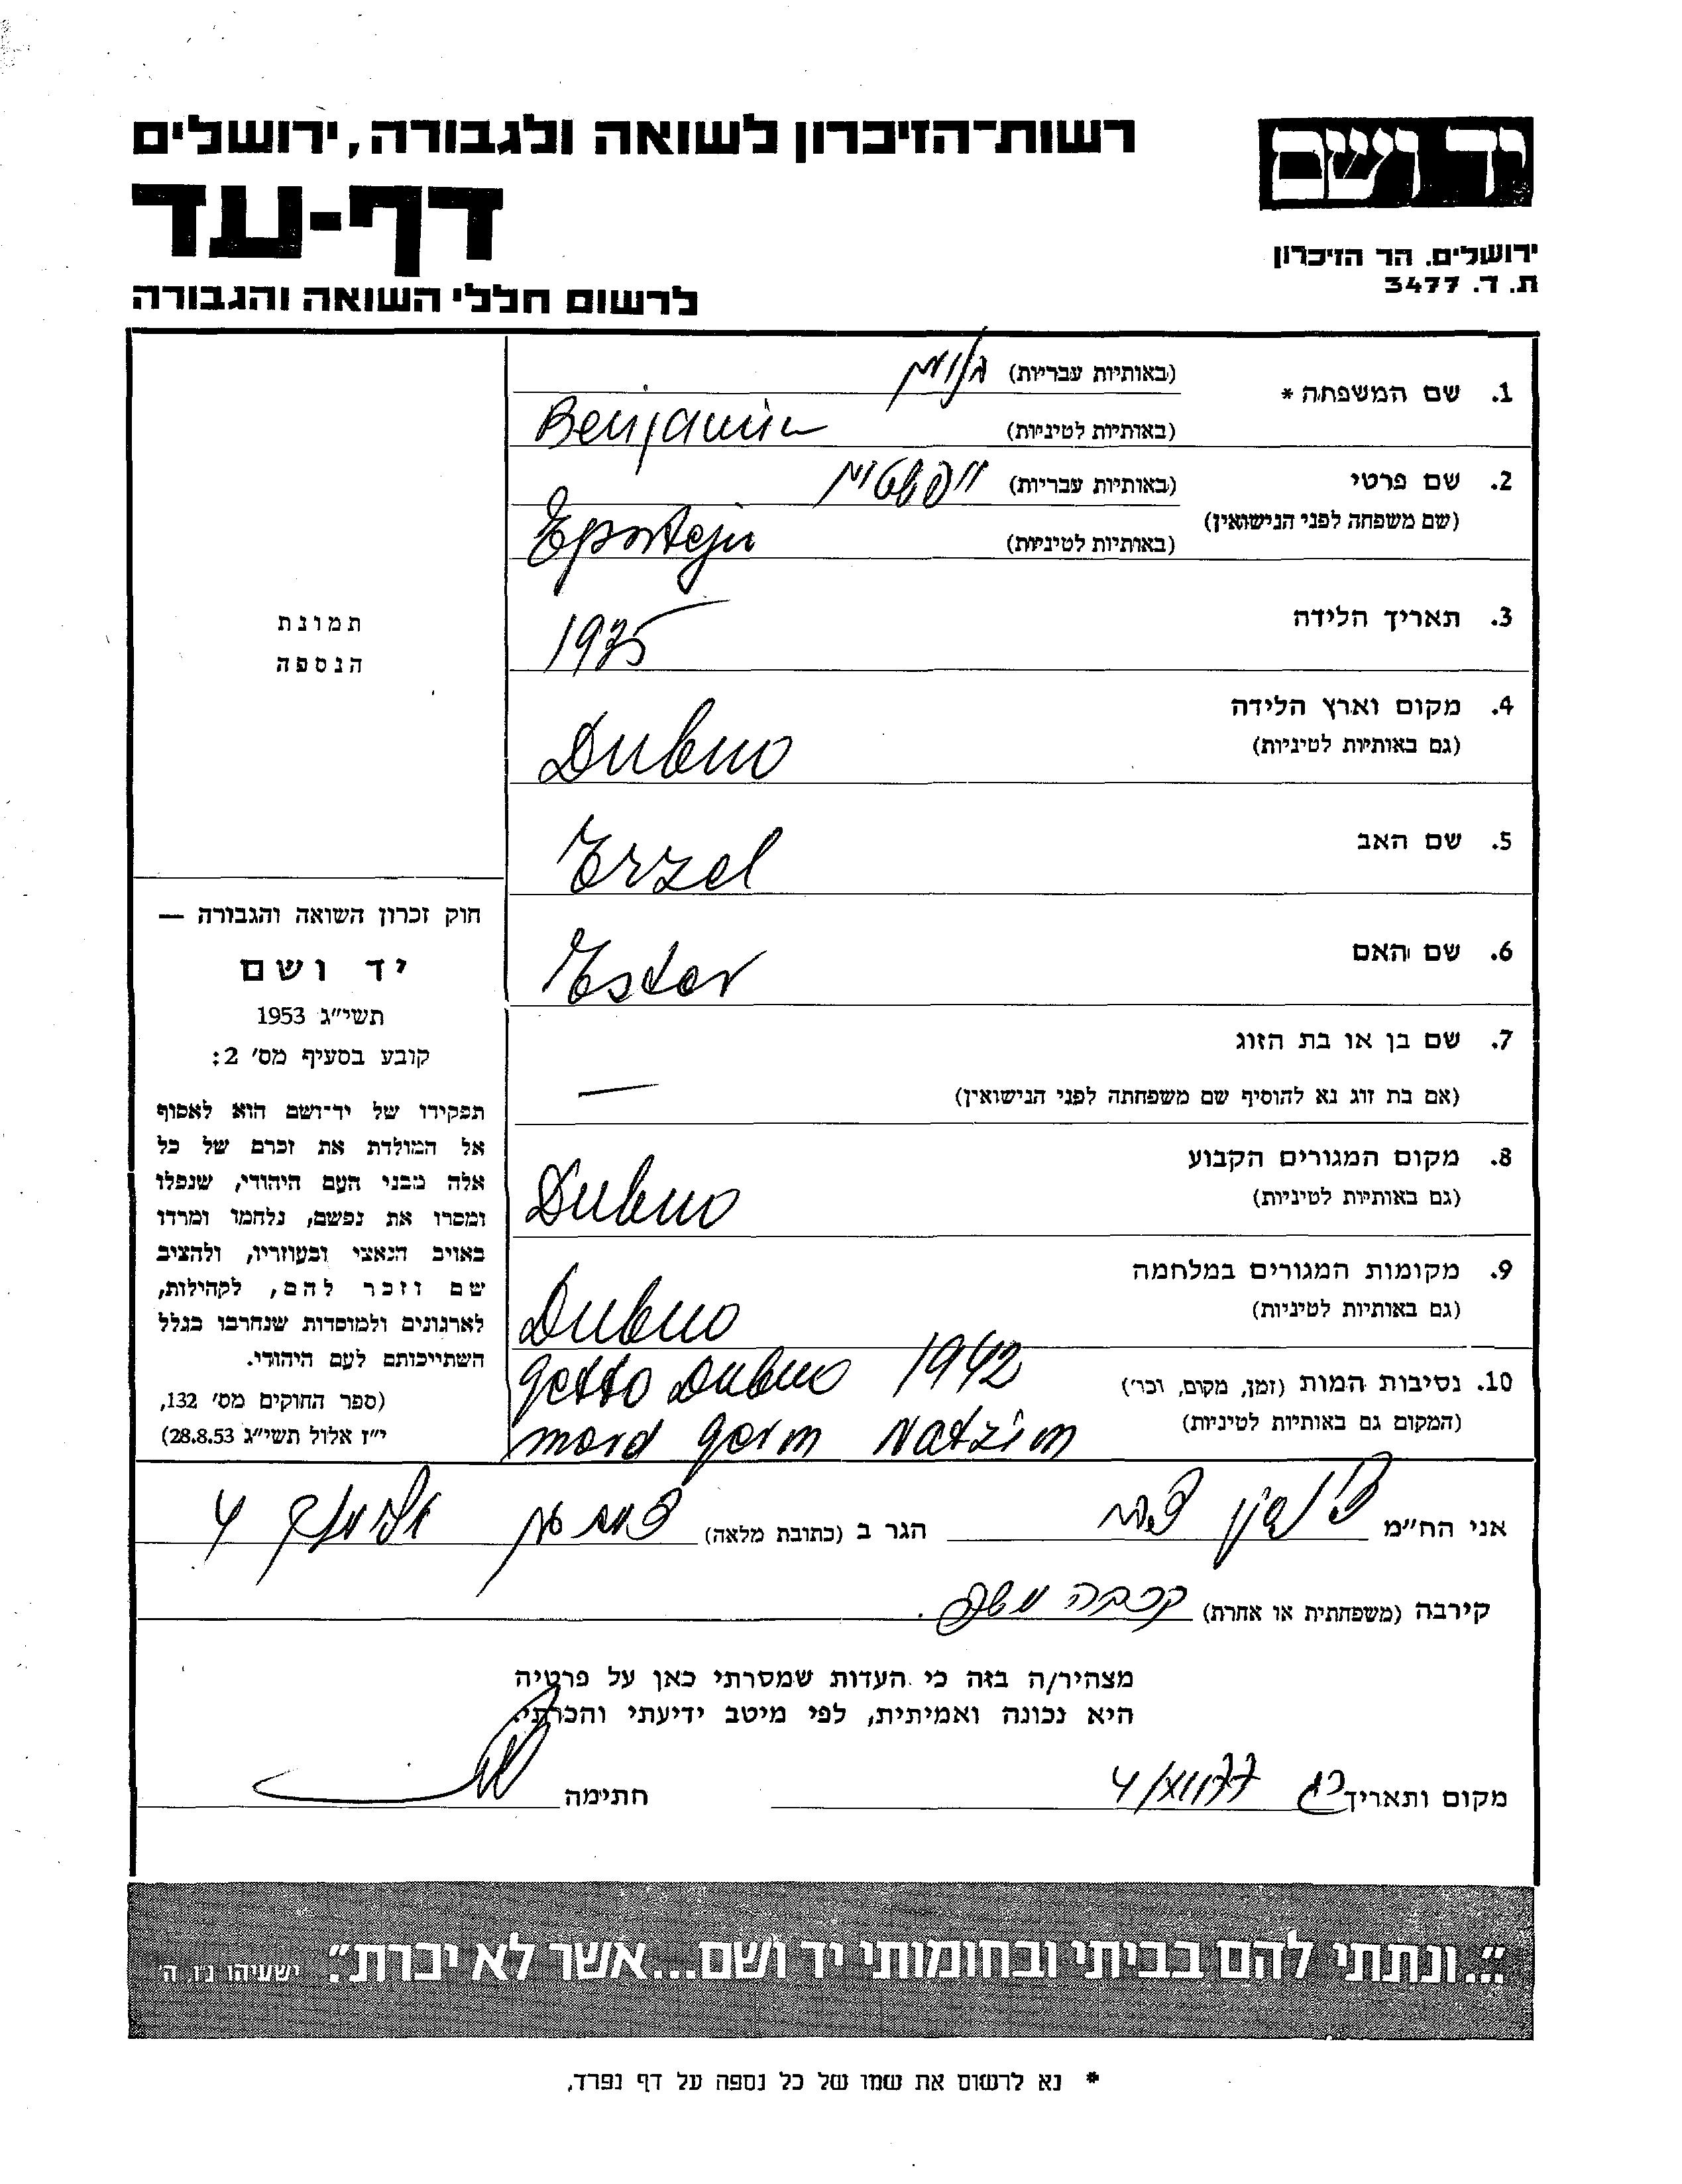 רשות־הזיכרון לשואה ולגבורה, ירושלים
דף-עד
לרשום חללי השואה והגבורה
יד ושם
ירושלים. הר הזיכרון
ת. ד. 3477
1. שם המשפחה *
(באותיות עבריות)
(באותיות לטיניות) Benjamin
2. שם פרטי
(באותיות עבריות)
(שם משפחה לפני הנישואין)
(באותיות לטיניות)
3. תאריך הלידה
4. מקום וארץ הלידה
(גם באותיות לטיניות) Dubno
5. שם האב Erzel
6. שם האם Ester
7. שם בן או בת הזוג
(אם בת זוג נא להוסיף שם משפחתה לפני הנישואין) —
8. מקום המגורים הקבוע
(גם באותיות לטיניות) Dubno
9. מקומות המגורים במלחמה
(גם באותיות לטיניות) Dubno
10. נסיבות המות (זמן, מקום, וכר׳) getto Dubno 1942
(המקום גם באותיות לטיניות) mord germ Natzim
תמונת
הנספה
חוק זכרון השואה והגבורה —
יד ושם
תשי״ג 1953
קובע בסעיף מס׳ 2:
תפקידו של יד־ושם הוא לאסוף
אל המולדת את זכרם של כל
אלה מבני העם היהודי, שנפלו
ומסרו את נפשם, נלחמו ומרדו
באויב הנאצי ובעוזריו, ולהציב
שם וזכר להם, לקהילות,
לארגונים ולמוסדות שנחרבו בגלל
השתייכותם לעם היהודי.
(ספר החוקים מס׳ 132,
י״ז אלול תשי״ג 28.8.53)
אני הח״מ הגר ב (כתובת מלאה) 4
קירבה (משפחתית או אחרת) קרבה
מצהיר/ה בזה כי העדות שמסרתי כאן על פרטיה
היא נכונה ואמיתית, לפי מיטב ידיעתי והכרתי.
מקום ותאריך חתימה
״...ונתתי להם בביתי ובחומותי יד ושם...אשר לא יכרת״. ישעיהו נ״ו, ה׳
* נא לרשום את שמו של כל נספה על דף נפרד.